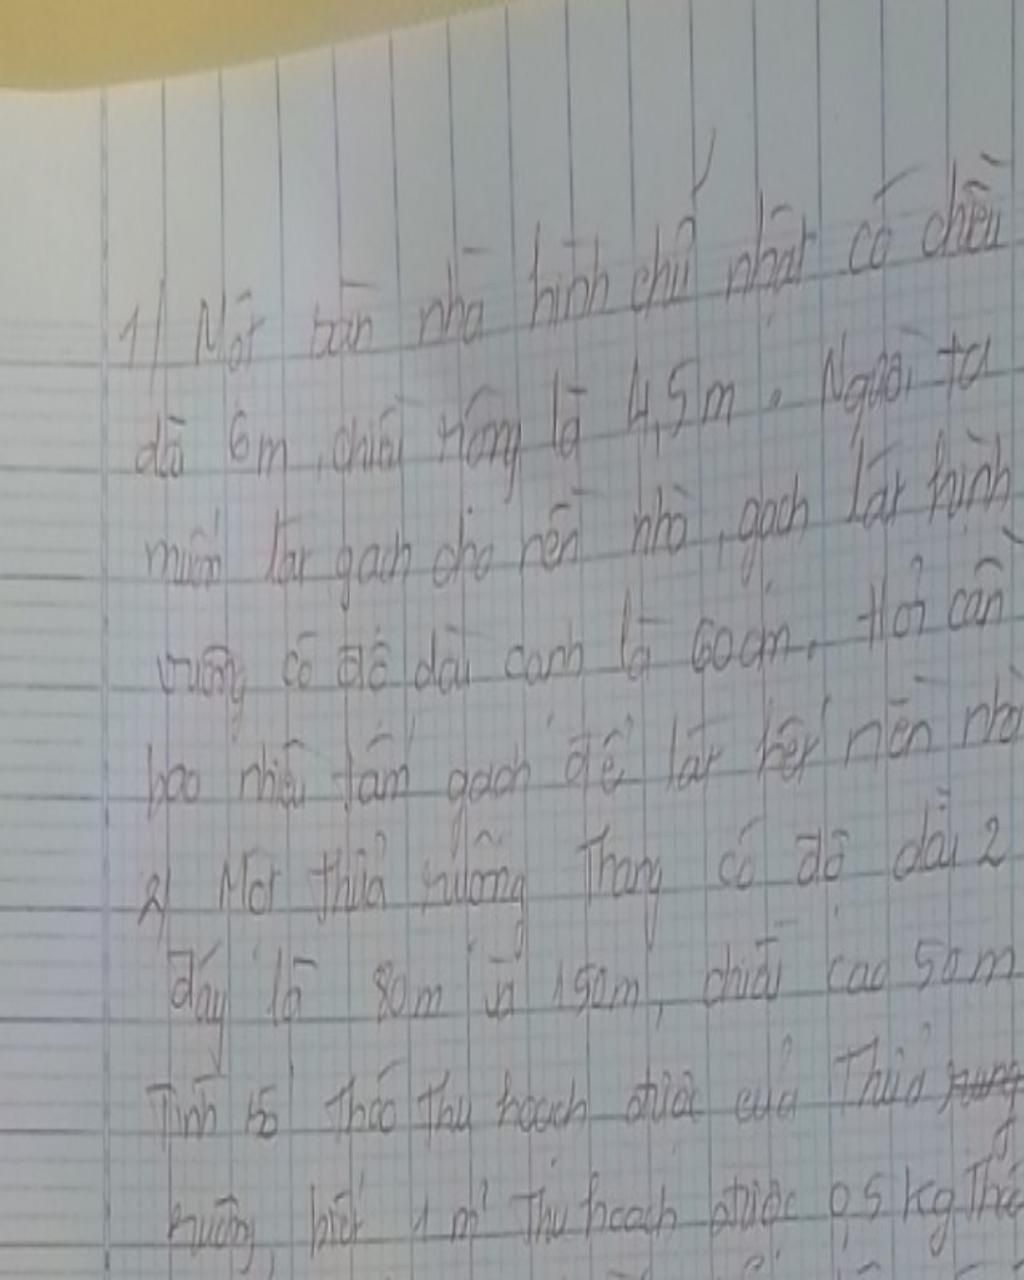 1) Một căn nhà hình chữ nhật có chiều
dài 6m, chiều rộng là 4,5m. Người ta
muốn lát gạch cho nền nhà, gạch lát hình
vuông có độ dài cạnh là 60cm. Hỏi cần
bao nhiêu tấm gạch để lát hết nền nhà
2) Một thửa ruộng Thang có độ dài 2
đáy là 80m và 150m, chiều cao 50m
Tính số thóc thu hoạch được của Thửa
ruộng, biết 1 m² Thu hoạch được 0,5 kg Thóc